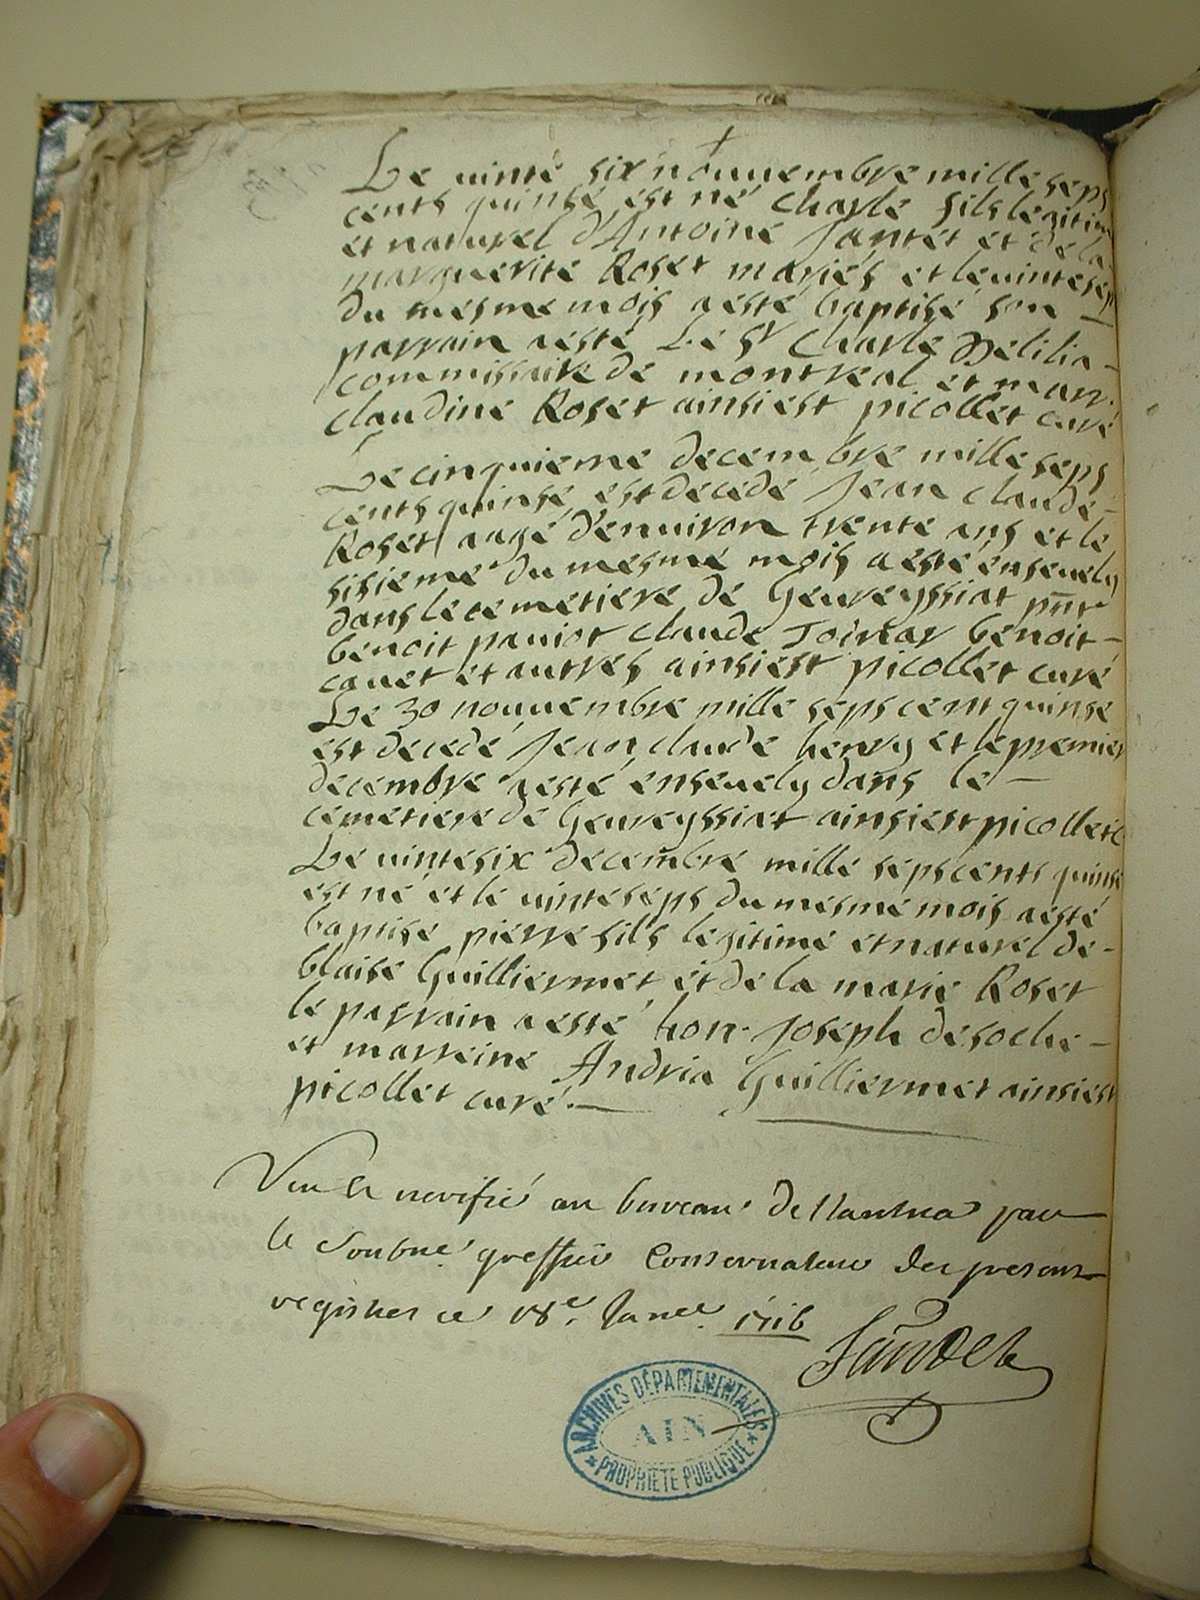 Le vinte six nouuembre mille seps
cents quinsé est né charle fils legitime
et naturel d'Antoine Jantet et de la
marguerite Roset mariés et le uinte seps
du mesme mois a esté baptisé son
parrain a esté Le Sr Charle Delilia
commissaire de montreal et marr.
claudine Roset ainsi est picollet curé
Le cinquieme decembre mille seps
cents quinsé est decedé Jean claude
Roset aagé d'enuiron trente ans et le
sisieme du mesme mois a esté enseuely
dans le cemetiere de Geureyssiat pnt
benoit pauiot claude Toirvar benoit
cauet et autres ainsi est picollet curé
Le 30 nouuembre mille seps cent quinse
est decedé Jean claude henry et le premier
decembre a esté enseuely dans le
cemetiere de Geureyssiat ainsi est picollet c
Le uinte six decembre mille seps cents quinse
est né et le uinte seps du mesme mois a esté
baptisé pierre fils legitime et naturel de
blaise Guilliermet et de la marie Roset
le parrain a esté hon. Joseph desoche
et marreine Andria Guilliermet ainsi est
picollet curé.
Veu et verifié au bureau de Nantua par
le Soubné greffier Conservateur des presents
registres ce 18e. Janer. 1716
Jandet
ARCHIVES DÉPARTEMENTALES
AIN
* PROPRIÉTÉ PUBLIQUE *